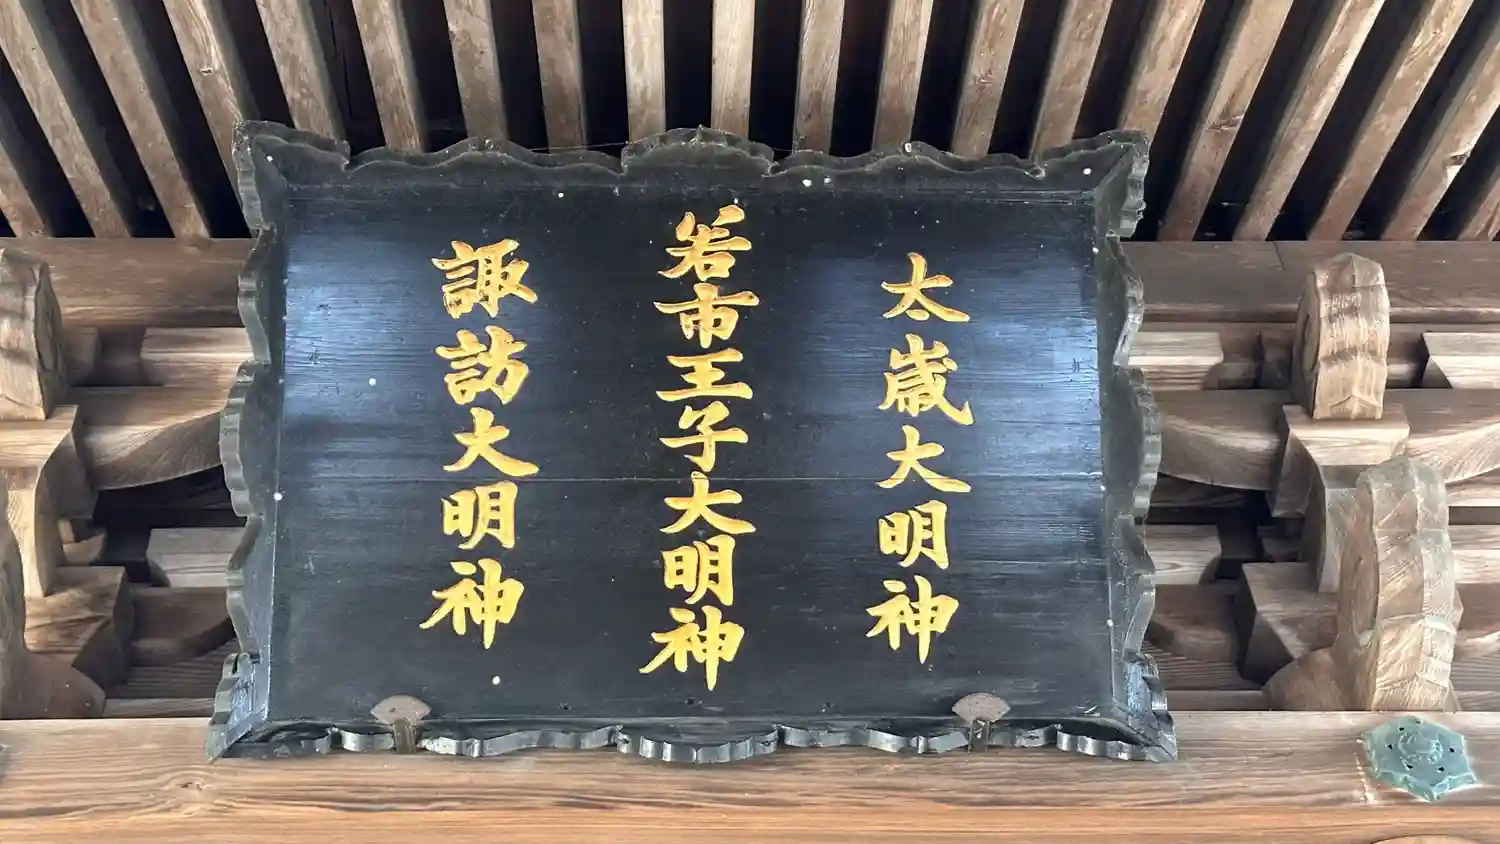 太歳大明神
若市王子大明神
諏訪大明神